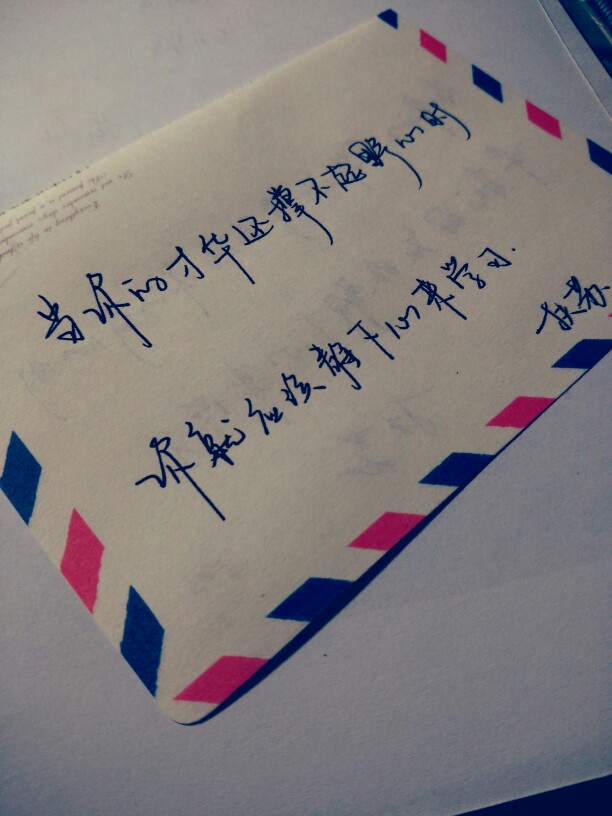 当你的才华还撑不起野心时
你就应该静下心来学习.
扶苏